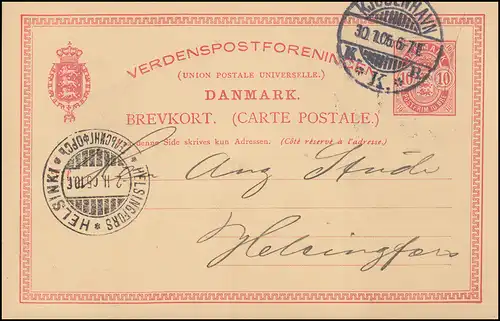 KJØBENHAVN
30.1.06. 6-7 E
K. K. B.
VERDENSPOSTFORENINGEN
(UNION POSTALE UNIVERSELLE.)
DANMARK.
BREVKORT. (CARTE POSTALE.)
denne Side skrives kun Adressen. (Côté réservé à l'adresse.)
10 10
HELSINGFORS * HELSINKI * ГЕЛЬСИНГФОРСЪ
2.II.06
Aug Stude
Helsingfors